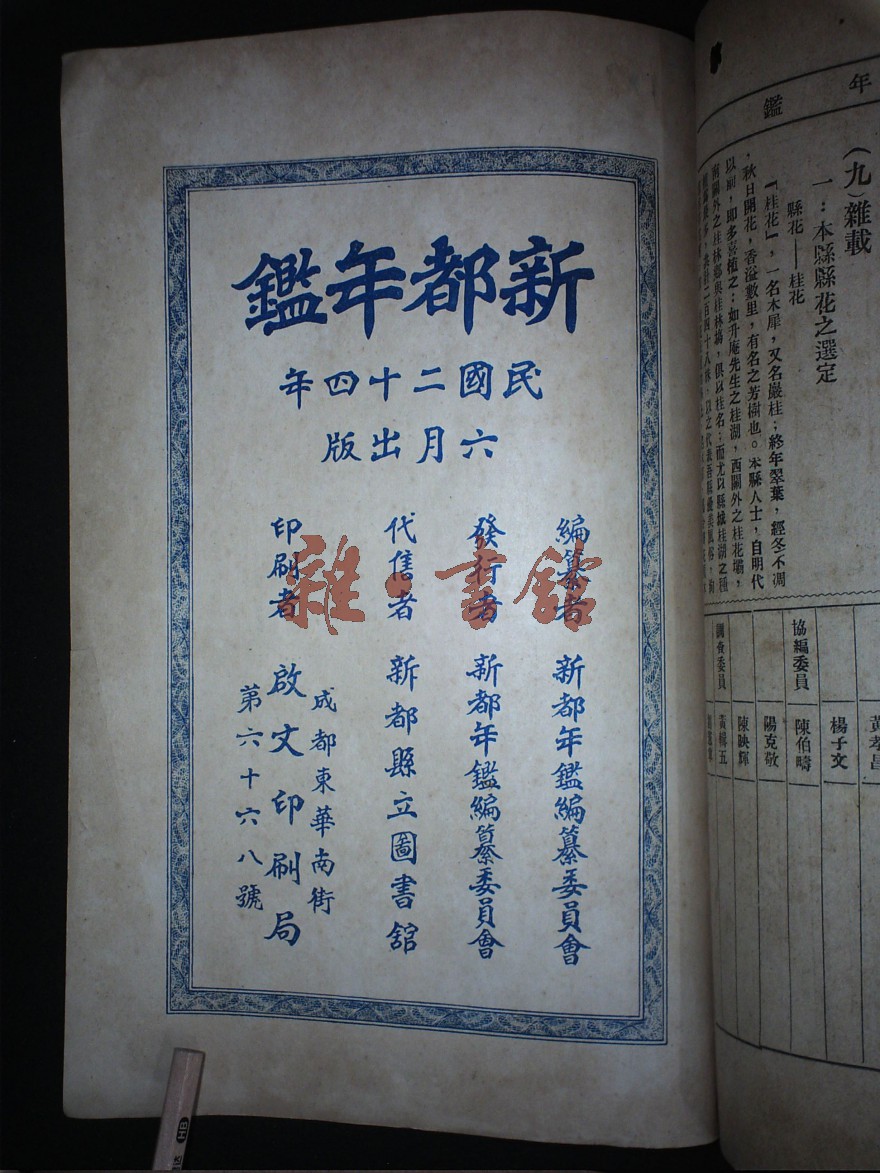 年鑑
(九)雜載
一：本縣縣花之選定
縣花——桂花
「桂花」，一名木犀，又名巖桂；終年翠葉，經冬不凋
，秋日開花，香溢數里，有名之芳樹也。本縣人士，自明代
以前，即多喜植之；如升庵先生之桂湖，西關外之桂花壩，
南關外之桂林鄉與桂林塢，俱以桂名；而尤以縣城桂湖之種
黃孝昌
楊子文
協編委員
陳伯疇
陽克敬
陳映輝
調查委員
黃輯五
新都年鑑
民國二十四年
六月出版
編纂者 新都年鑑編纂委員會
發行者 新都年鑑編纂委員會
代售者 新都縣立圖書舘
印刷者 啟文印刷局
成都東華南街
第六十六八號
雜·書舘
HB